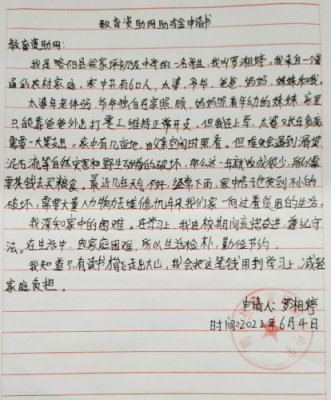 教育资助网助金申请书
教育资助网:
我是略阳县徐家坪初级中学的一名学生,我叫罗湘婷,我来自一个普
通的农村家庭,家中共有6口人,太婆、爷爷、爸爸、妈妈、妹妹和我。
太婆年老体弱,爷爷独自在家照顾,妈妈照看年幼的妹妹,家里
只能靠爸爸外出打零工维持正常开支,但我在上学,太婆又长年多病
需要一大笔支出,家中有几亩地,由爷爷空闲时照看,但难免会遇到滑坡
泥石流等自然灾害和野生动物的破坏,那么这一年就收成很少,所以需
要花钱去买粮食,最近几年天气不好,经常下雨,家中房子也受到不小的
破坏,需要大量人力物力去维修,也许来我们家一向过着贫困的生活。
我深知家中的困难。在学习上,我在校期间刻苦奋进,遵纪守
法。在生活中,因家庭困难,所以生活俭朴,勤俭节约。
我知道只有读书才能走出大山,我会把这笔钱用到学习上,减轻
家庭负担。
申请人:罗湘婷
时间:2022年6月4日